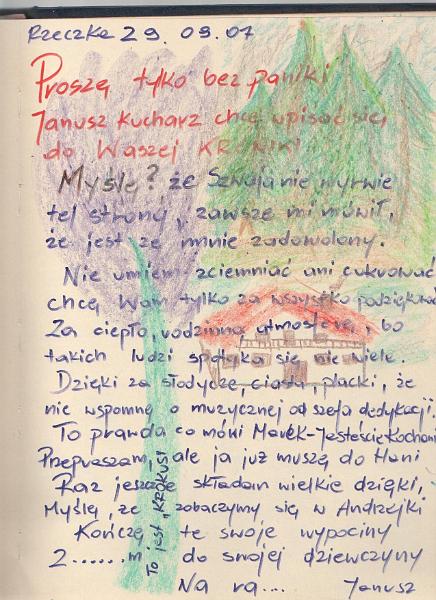 Rzeczka 29.09.07
Proszę tylko bez paniki
Janusz Kucharz chce wpisać się
do Waszej KRONIKI
Myślę? że Szwaja nie wyrwie
tej strony, zawsze mi mówił,
że jest ze mnie zadowolony.
Nie umiem ściemniać ani cukrować
chcę Wam tylko za wszystko podziękować
Za ciepło, rodzinną atmosferę, bo
takich ludzi spotyka się nie wiele.
Dzięki za słodycze, ciasta, placki, że
nie wspomnę o muzycznej od szefa dedykacji.
To prawda co mówi Marek-Jesteście Kochani
Przepraszam, ale ja już muszę do Hani
Raz jeszcze składam wielkie dzięki,
Myślę, że zobaczymy się w Andrzejki
Kończę te swoje wypociny
Z......m do swojej dziewczyny
Na ra... Janusz
To jest „KROKUS"